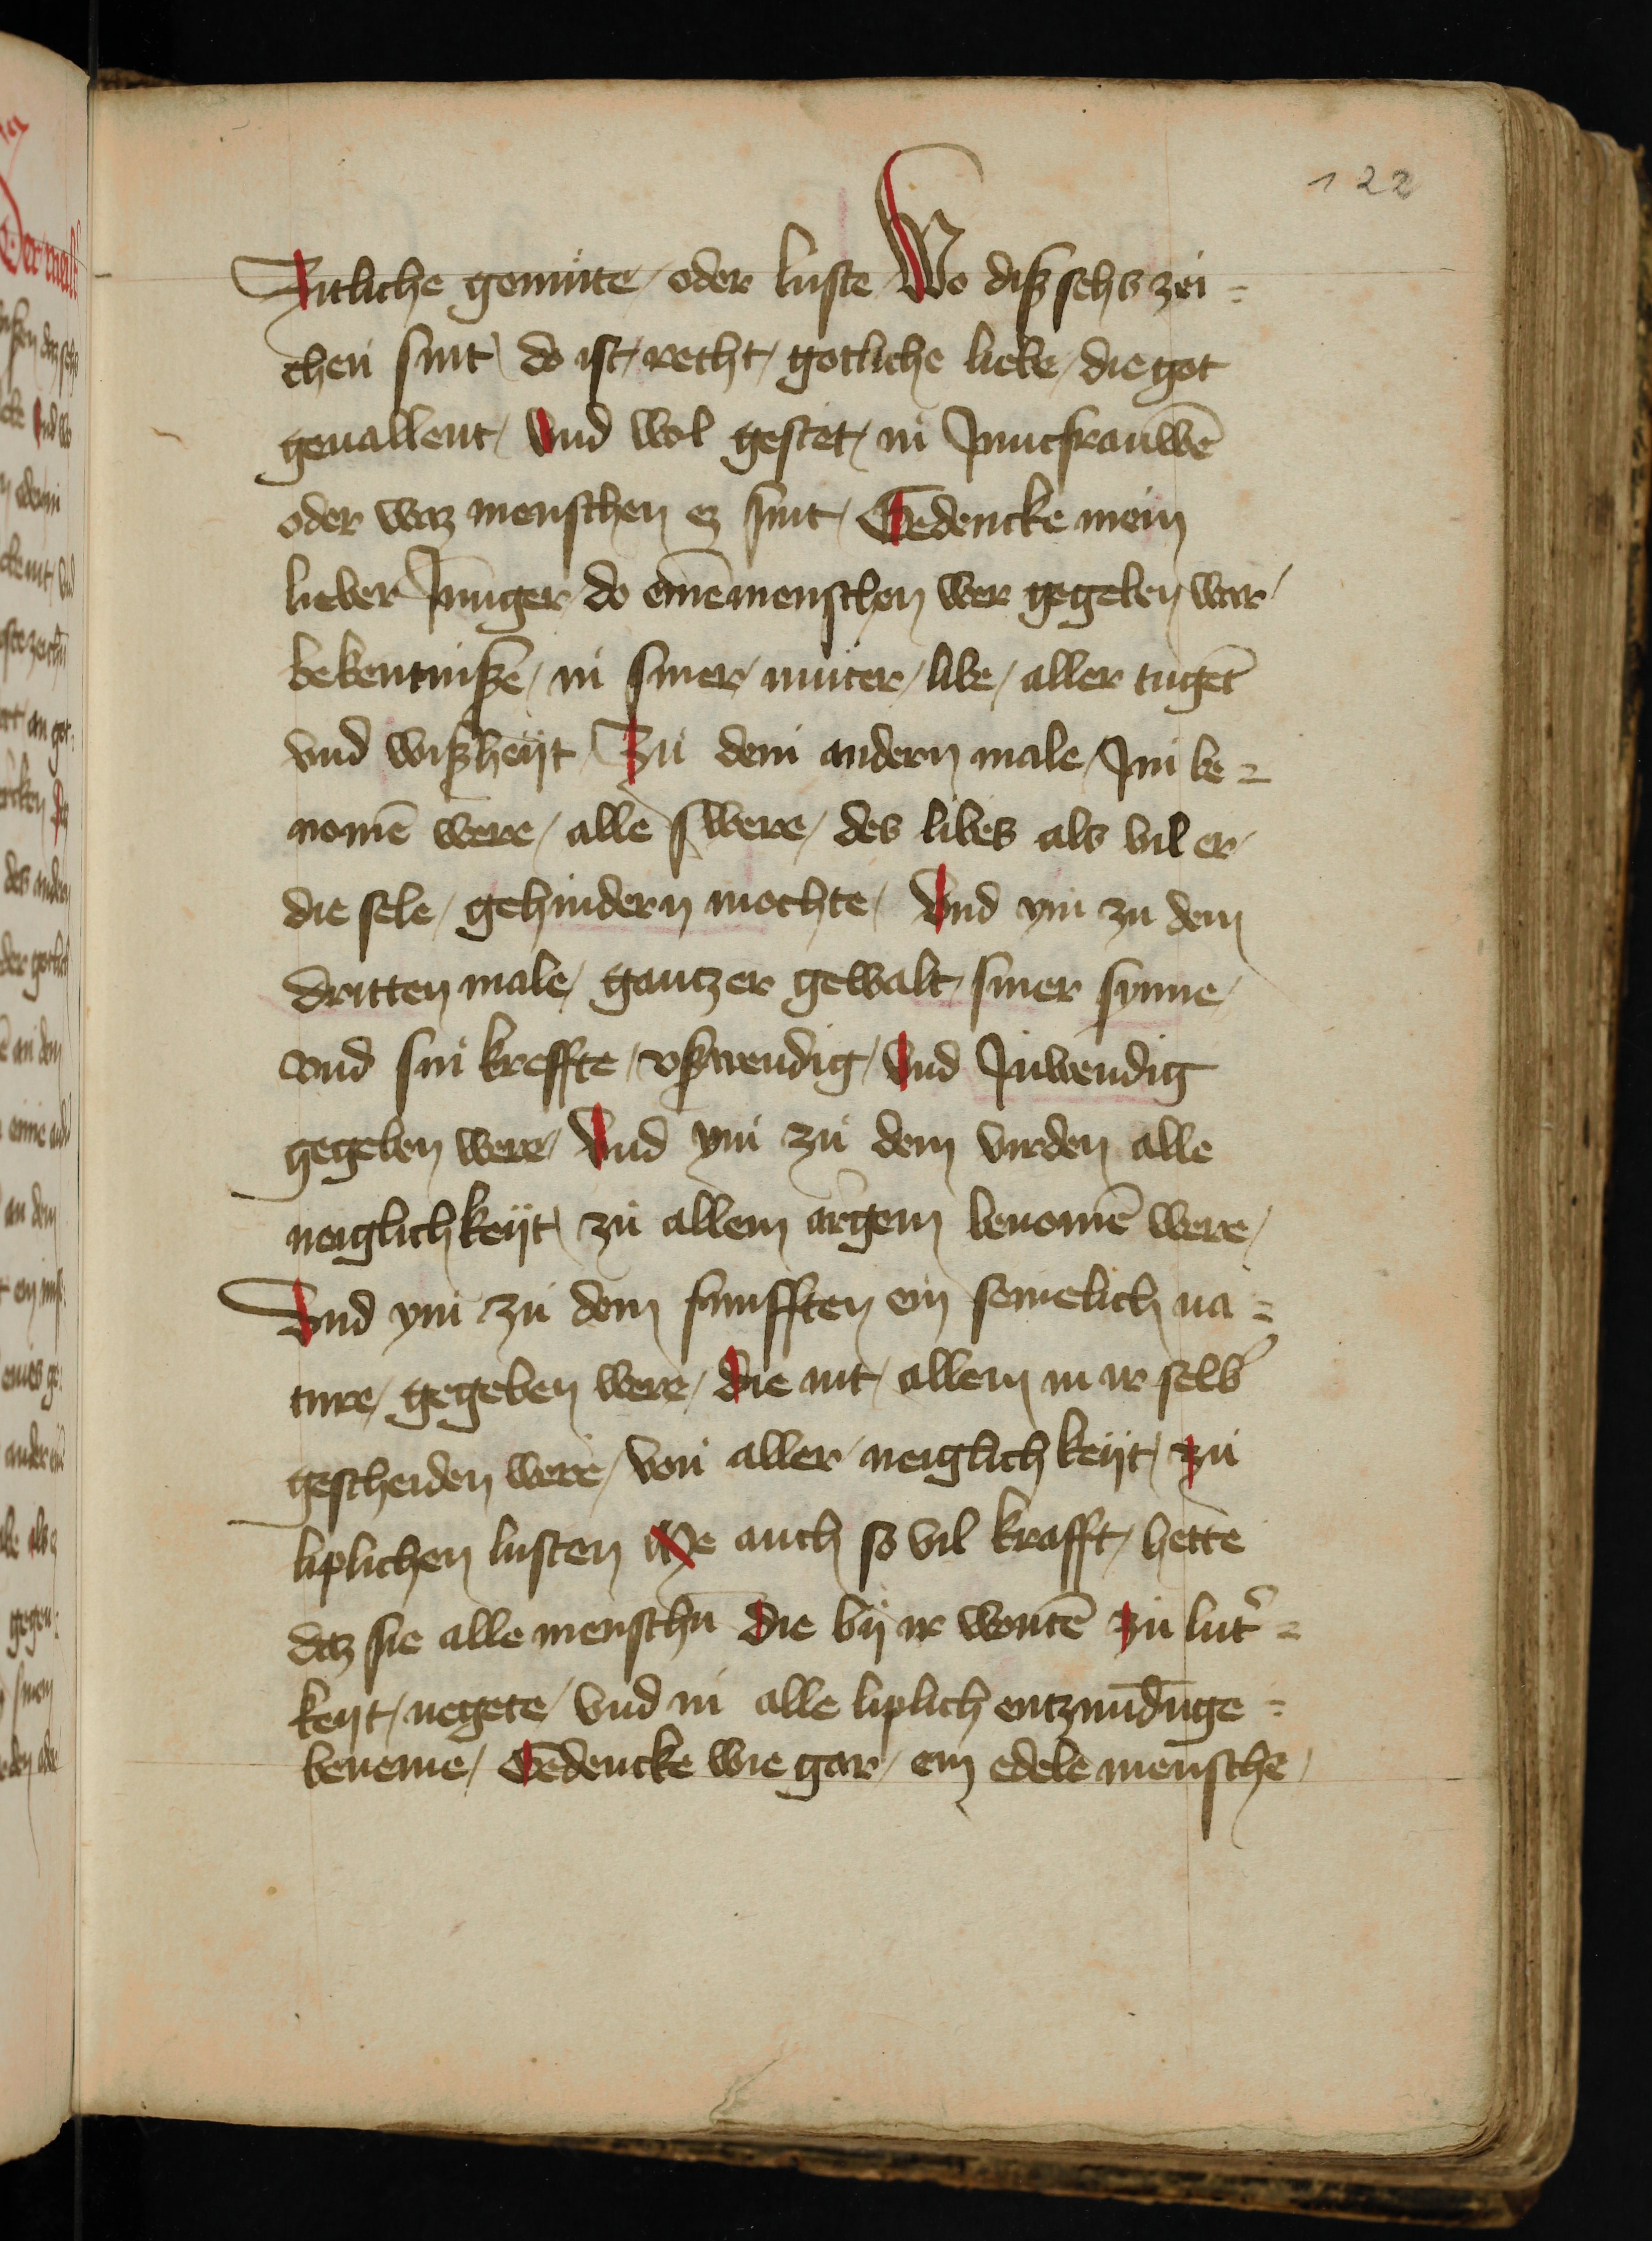 122
Zitliche gemüte / oder luste Wo diß sehs zei =
chen sint / do ist / recht / gotliche liebe / die got
geuallent / Vnd wol gestet / in Juncfrauwē
oder waz menschen ez sint / Gedencke mein
lieber Junger / do einē menschen wer gegeben war /
bekentnißē / in siner / muter / libe / aller tugēt
vnd wißheÿt / Zu dem andern male / Jm be =
nomē were / alle swere / des libes als vil er /
die sele / gehindern mochte / Vnd ym zu dem
dritten male / gantzer gewalt / siner synne /
vnd sin kreffte / vßwendig / Vnd Jnwendig
gegeben were / Vnd ym zu dem virden alle
neiglichkeÿt / zu allem argem benomē were /
Vnd ym zu dem funfften ein semelich na =
ture / gegeben were / die nit / allein in ir selb'
gescheiden were / von aller / neiglichkeÿt / zu
liplichen lusten Me auch so vil krafft / hette
daz sie alle menschn̄ Die bÿ ir wontē zu lut' =
keÿt / negete / vnd in alle liplich entzundūge =
beneme / Gedencke wie gar / ein edele mensche /